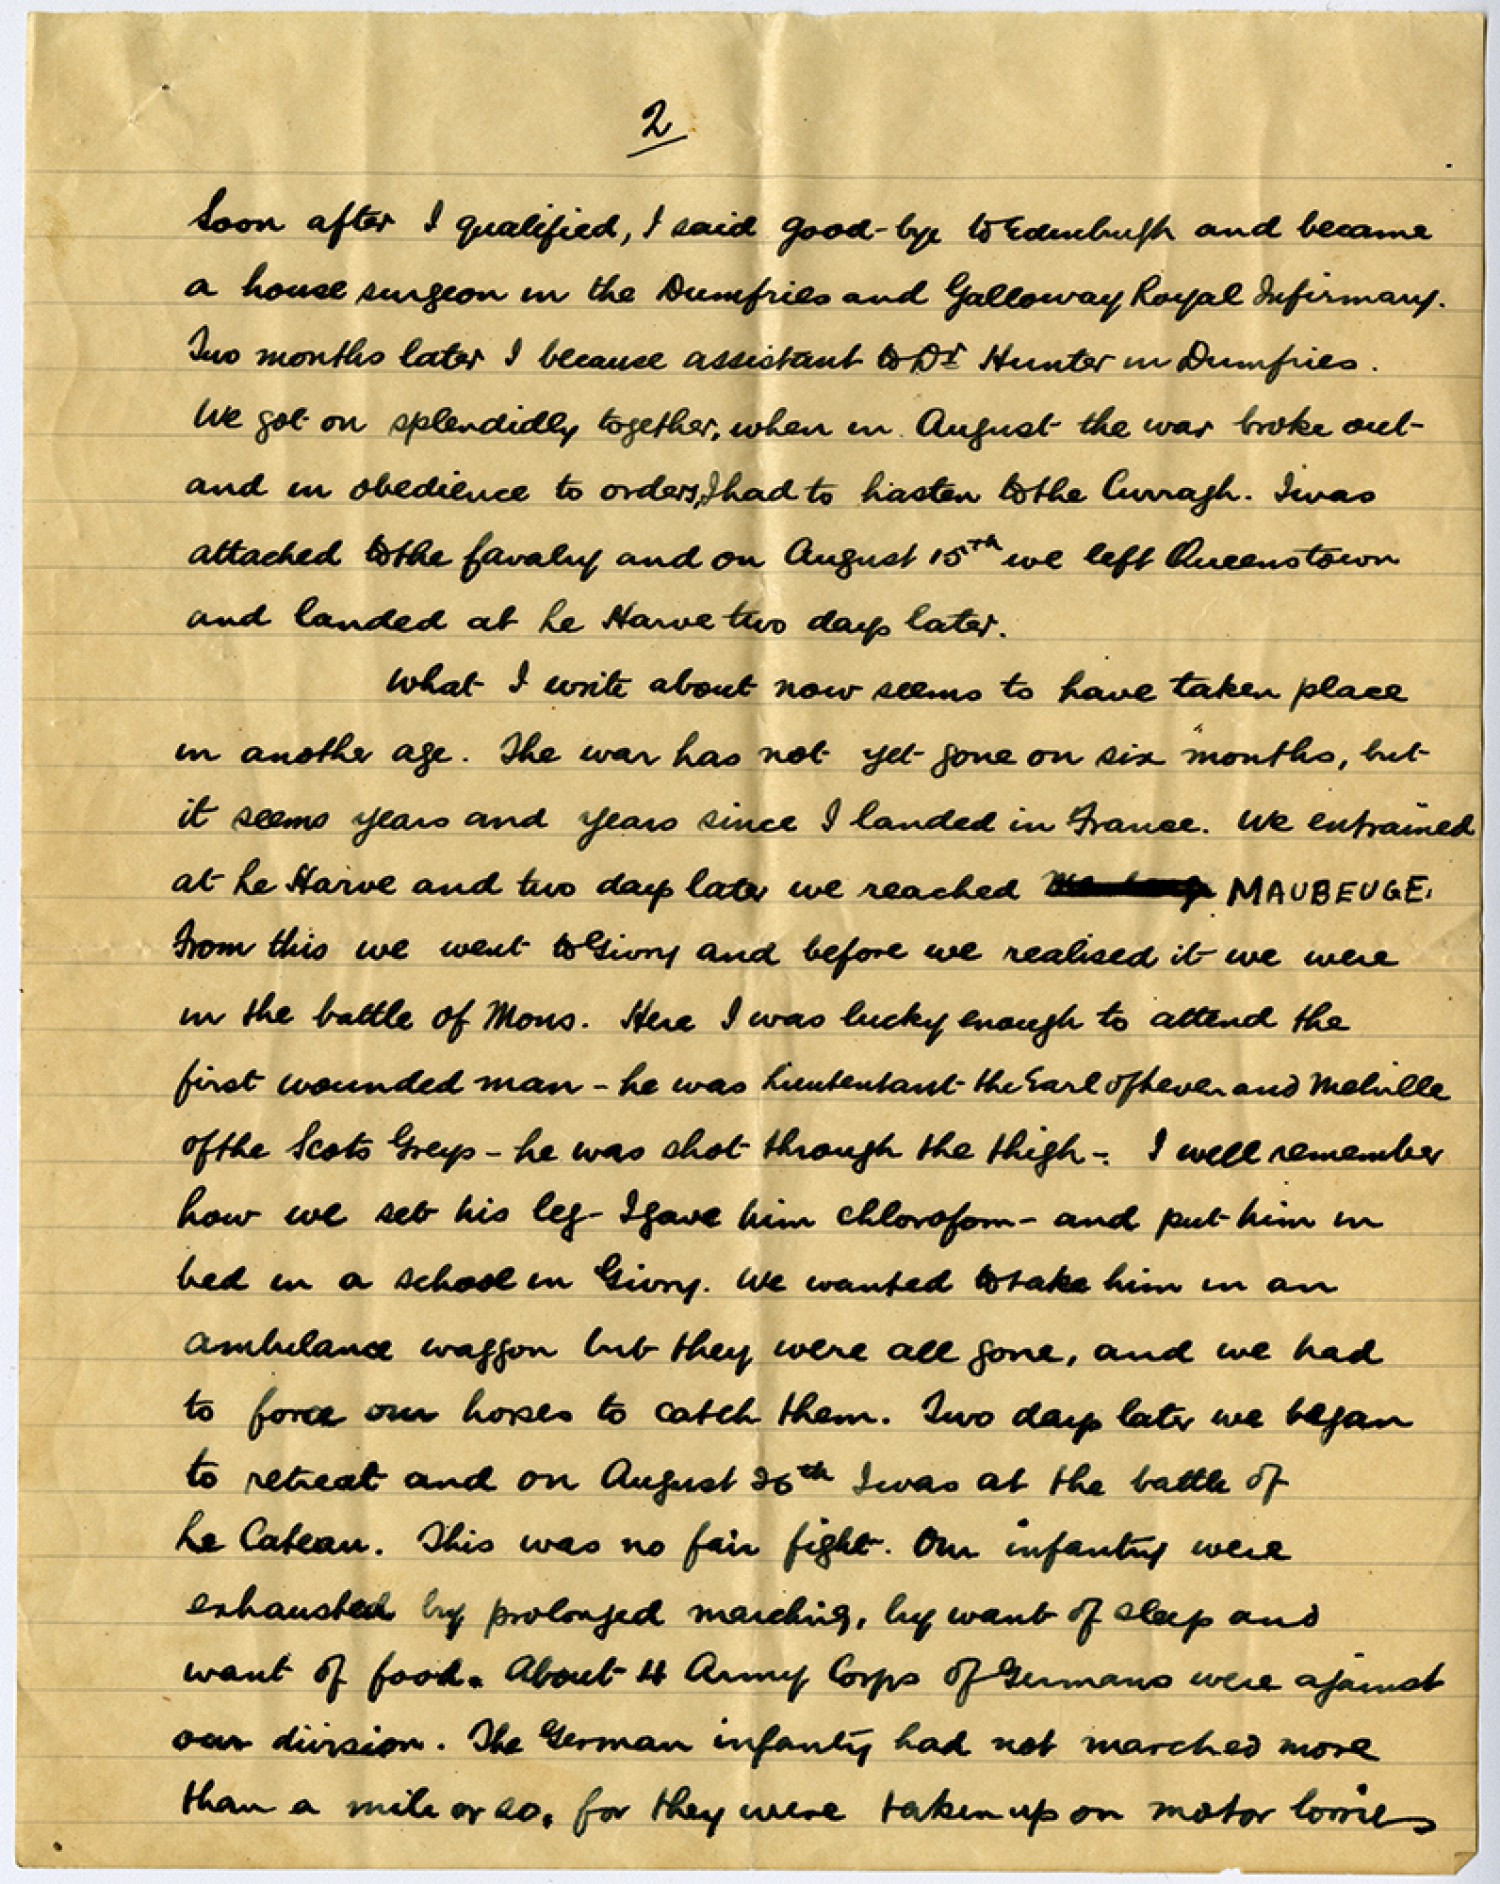 2
Soon after I qualified, I said good-bye to Edinburgh and became
a house surgeon in the Dumfries and Galloway Royal Infirmary.
Two months later I because assistant to Dr Hunter in Dumfries.
We got on splendidly together, when in August the war broke out
and in obedience to orders, I had to hasten to the Curragh. I was
attached to the Cavalry and on August 15th we left Queenstown
and landed at Le Harve two days later.
What I write about now seems to have taken place
in another age. The war has not yet gone on six months, but
it seems years and years since I landed in France. We entrained
at Le Harve and two days later we reached MAUBEUGE.
From this we went to Givry and before we realised it we were
in the battle of Mons. Here I was lucky enough to attend the
first wounded man - he was Lieutentant the Earl of Leven and Melville
of the Scots Greys - he was shot through the thigh -. I well remember
how we set his leg - I gave him chlorofom - and put him in
bed in a school in Givry. We wanted to take him in an
ambulance waggon but they were all gone, and we had
to force our horses to catch them. Two days later we began
to retreat and on August 26th I was at the battle of
Le Cateau. This was no fair fight. Our infantry were
exhausted by prolonged marching, by want of sleep and
want of food. About 4 Army Corps of Germans were against
our division. The German infanty had not marched more
than a mile or so, for they were taken up on motor lorries